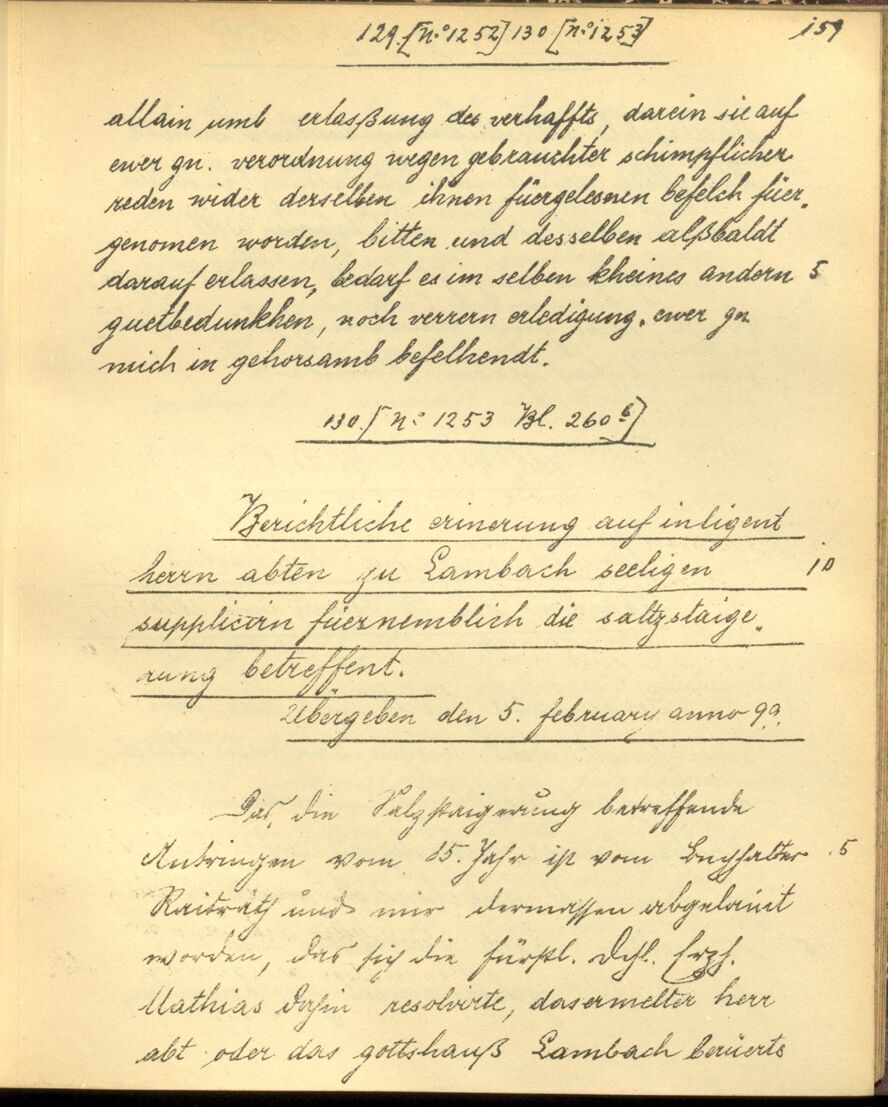 129. [N.º 1252] 130 [N.º 1253] 159
allain umb erlasßung des verhaffts, darein sie auf
ewer gn. verordnung wegen gebrauchter schimpflicher
reden wider derselben ihnen füergelesnen befelch füer„
genomen worden, bitten und desselben alßbaldt
darauf erlassen, bedarf es im selben kheines andern 5
guetbedunkhen, noch verrern erledigung. ewer gn.
mich in gehorsamb befelhendt.
130. [N.º 1253 Bl. 260 b]
Berichtliche erinerung auf inligent
herrn abten zu Lambach seeligen 10
supplicirn füernemblich die saltzstaige„
rung betreffent.
Übergeben den 5. february anno 99.
Das, die Salzstaigerung betreffende
Anbringen vom 85. Jahr ist vom Buchhalter 5
Raiträth und mir dermassen abgelaint
worden, das sich die fürstl. Dchl. Erzh.
Mathias dahin resolvirte, das ermelter herr
abt oder das gottshauß Lambach berüerte